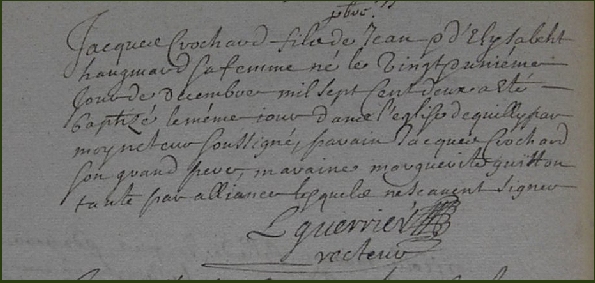 pbre.
Jacques Crochard fils de Jean & d'Elysabeht
haugmard sa femme né le Vingt unième
Jour de decembre mil sept cent deux a eté
Baptizé le même jour dans l'eglise de quilly par
moy recteur soussigné, parain Jacques Crochard
son grand pere, maraine marguerite guitton
tante par alliance lesquels ne scavent signer
L guerrier
recteur